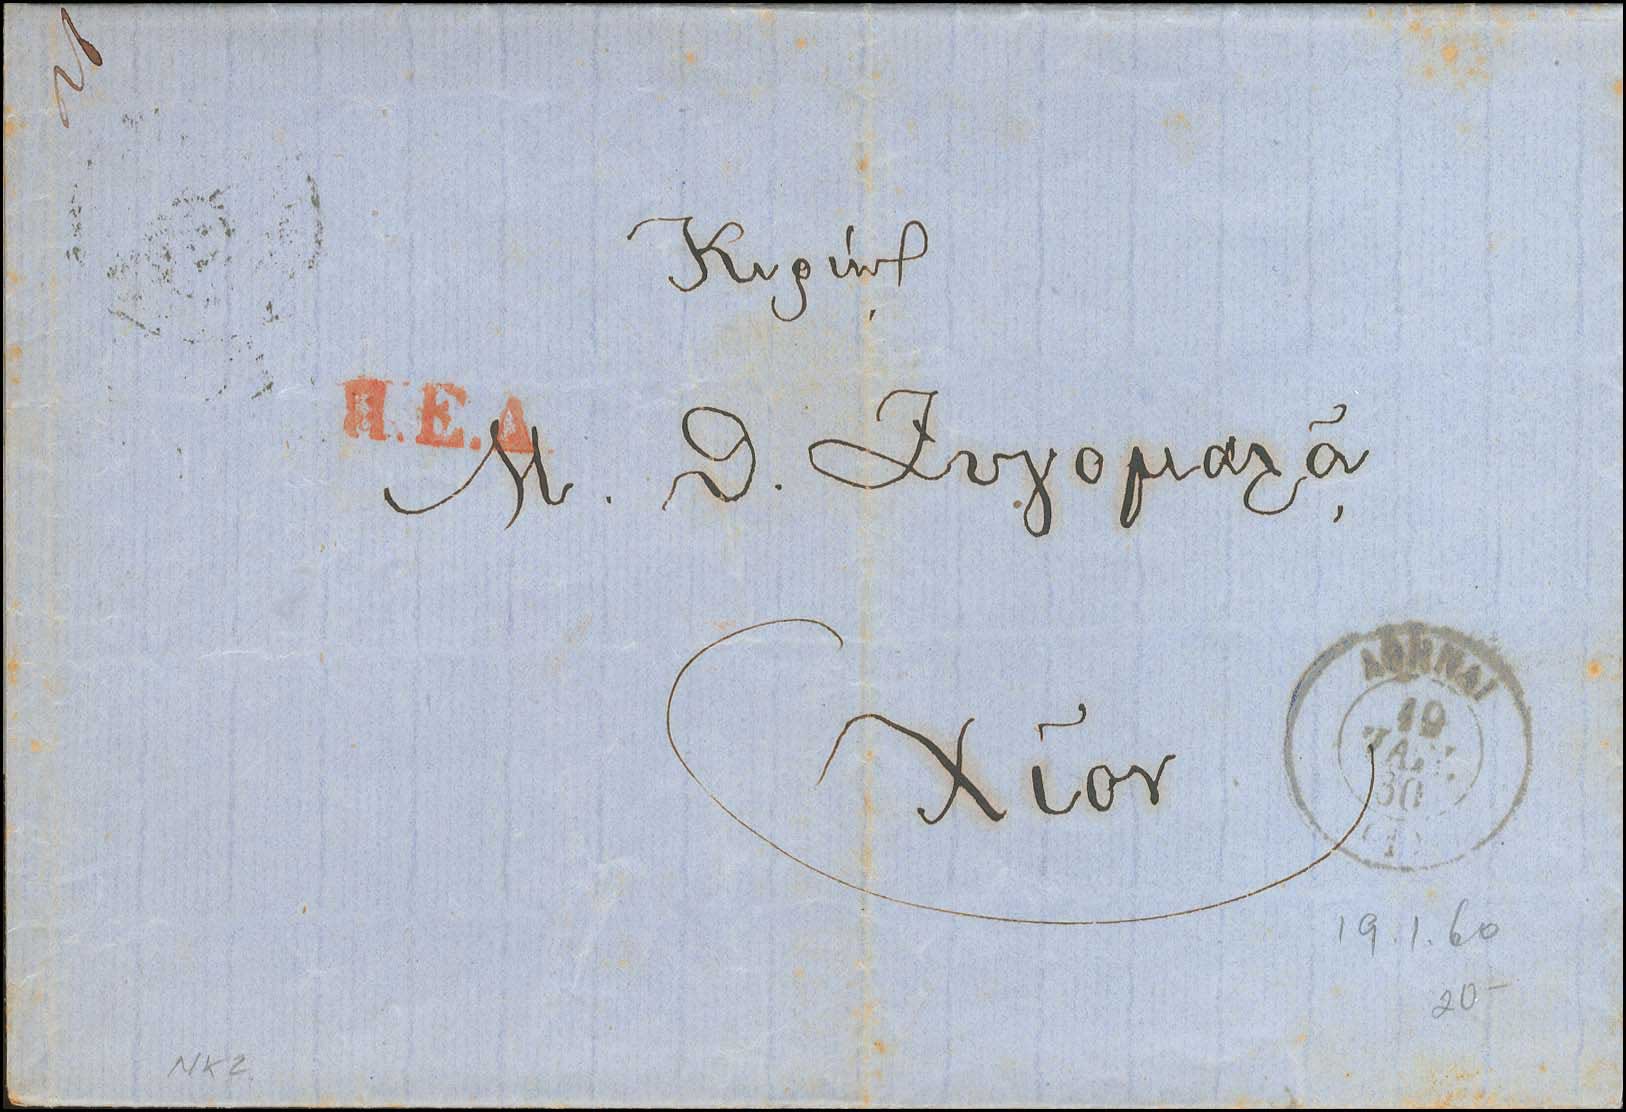 Κυρίῳ
Π.Ε.Δ.
Μ. Δ. Ζυγομαλᾷ
Χῖον
ΑΘΗΝΑΙ
19
ΙΑΝ.
60
19.1.60
20-
NK2